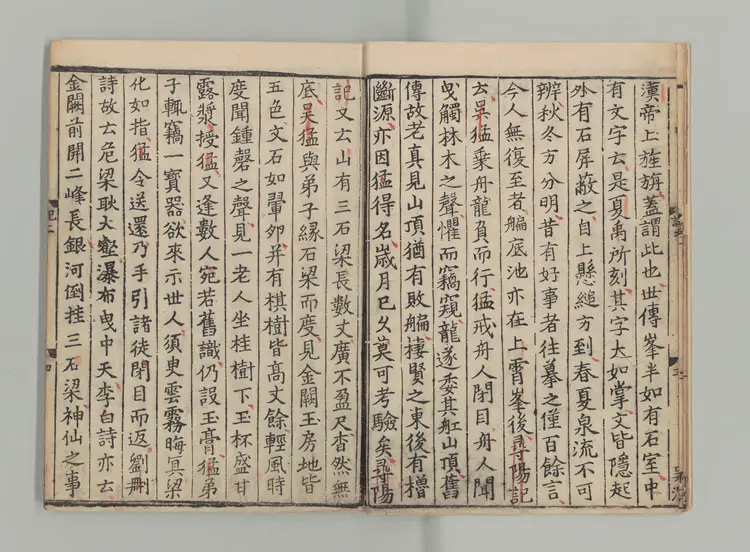 漢帝上旌旃蓋謂此也世傳峯半如有石室中
有文字云是夏禹所刻其字大如掌文皆隱起
外有石屏蔽之自上懸縋方到春夏泉流不可
辨秋冬方分明昔有好事者往摹之僅百餘言
今人無復至者艑底池亦在上霄峯後尋陽記
云吴猛乗舟龍負而行猛戒舟人閉目舟人聞
曵觸林木之聲懼而竊窺龍遂委其舡山頂舊
傳故老真見山頂猶有敗艑棲賢之東後有櫓
斷源亦因猛得名歳月已久莫可考驗矣尋陽
記又云山有三石梁長數丈廣不盈尺杳然無
底吴猛與弟子縁石梁而度見金闕玉房地皆
五色文石如翬夘并有棋樹皆髙丈餘輕風時
度聞鍾磬之聲見一老人坐桂樹下玉杯盛甘
露漿授猛又逢數人宛若舊識仍設玉膏猛弟
子輒竊一寳器欲來示世人須臾雲霧晦冥梁
化如指猛令送還乃手引諸徒閉目而返劉刪
詩故云危梁耿大壑瀑布曵中天李白詩亦云
金闕前開二峰長銀河倒挂三石梁神仙之事
記二
四